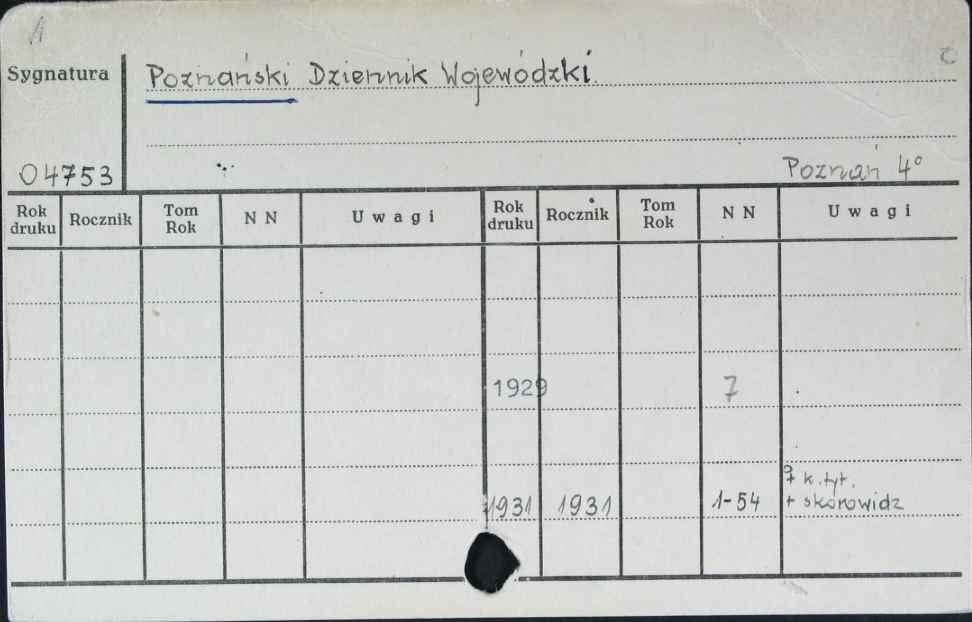 1
Sygnatura
Poznański Dziennik Wojewódzki.
04753
Poznań 4°
Rok druku Rocznik Tom Rok N N Uwagi Rok druku Rocznik Tom Rok N N Uwagi
1929 7
+ k. tyt.
1931 1931 1-54 + skorowidz